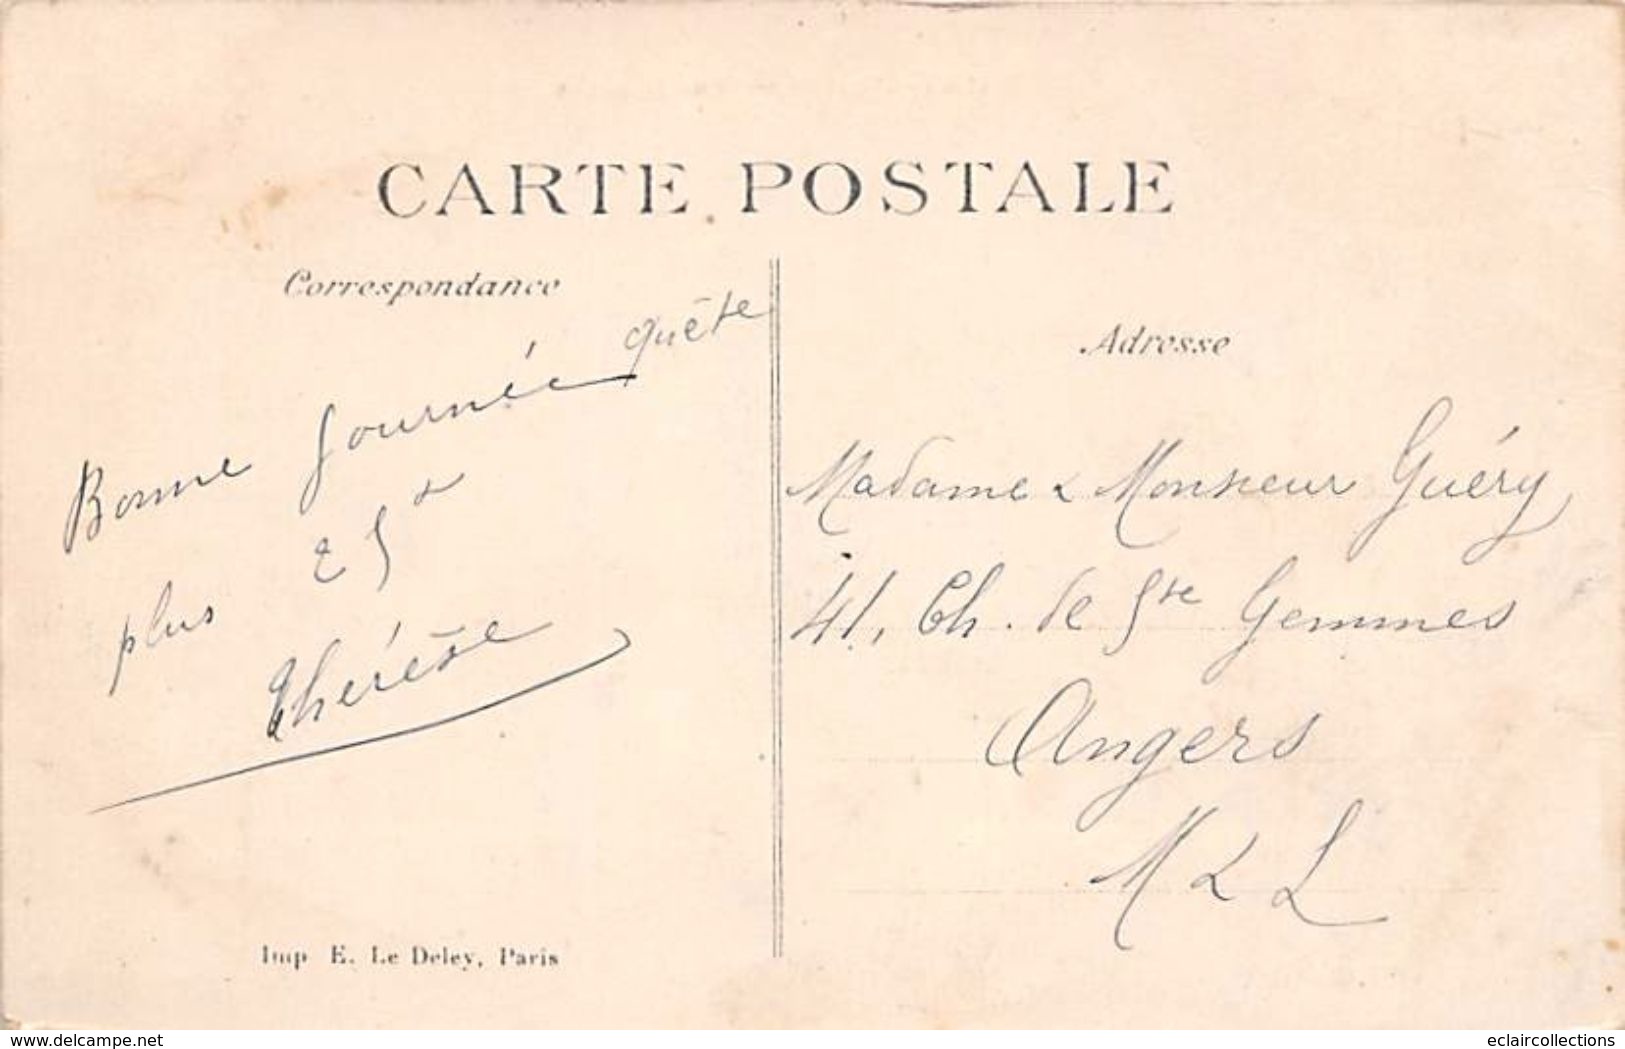 CARTE POSTALE
Correspondance
Bonne journée quête
plus 25
Thérèse
Imp E. Le Deley, Paris
Adresse
Madame & Monsieur Guéry
41, Ch. de Ste Gemmes
Angers
M & L
www.delcampe.net
eclaircollections